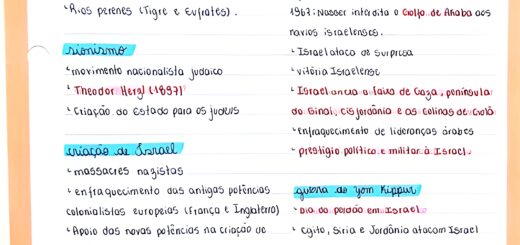 Rios perenes (Tigre e Eufrates).
sionismo
movimento nacionalista judaico
Theodor Hergl (1897)
Criação do Estado para os judeus
criação de Israel
massacres nazistas
enfraquecimento das antigas potências
colonialistas europeias (França e Inglaterra)
Apoio das novas potências na criação de
1967: Nasser interdita o Golfo de Akaba aos
navios israelenses.
Israel ataca de surpresa
vitória Israelense
Israel anexa a faixa de Gaza, península
do Sinai, Cisjordânia e as Colinas de Golã
enfraquecimento de lideranças árabes
prestígio político e militar à Israel.
guerra do Yom Kippur
Dia do perdão em Israel
Egito, Síria e Jordânia atacam Israel